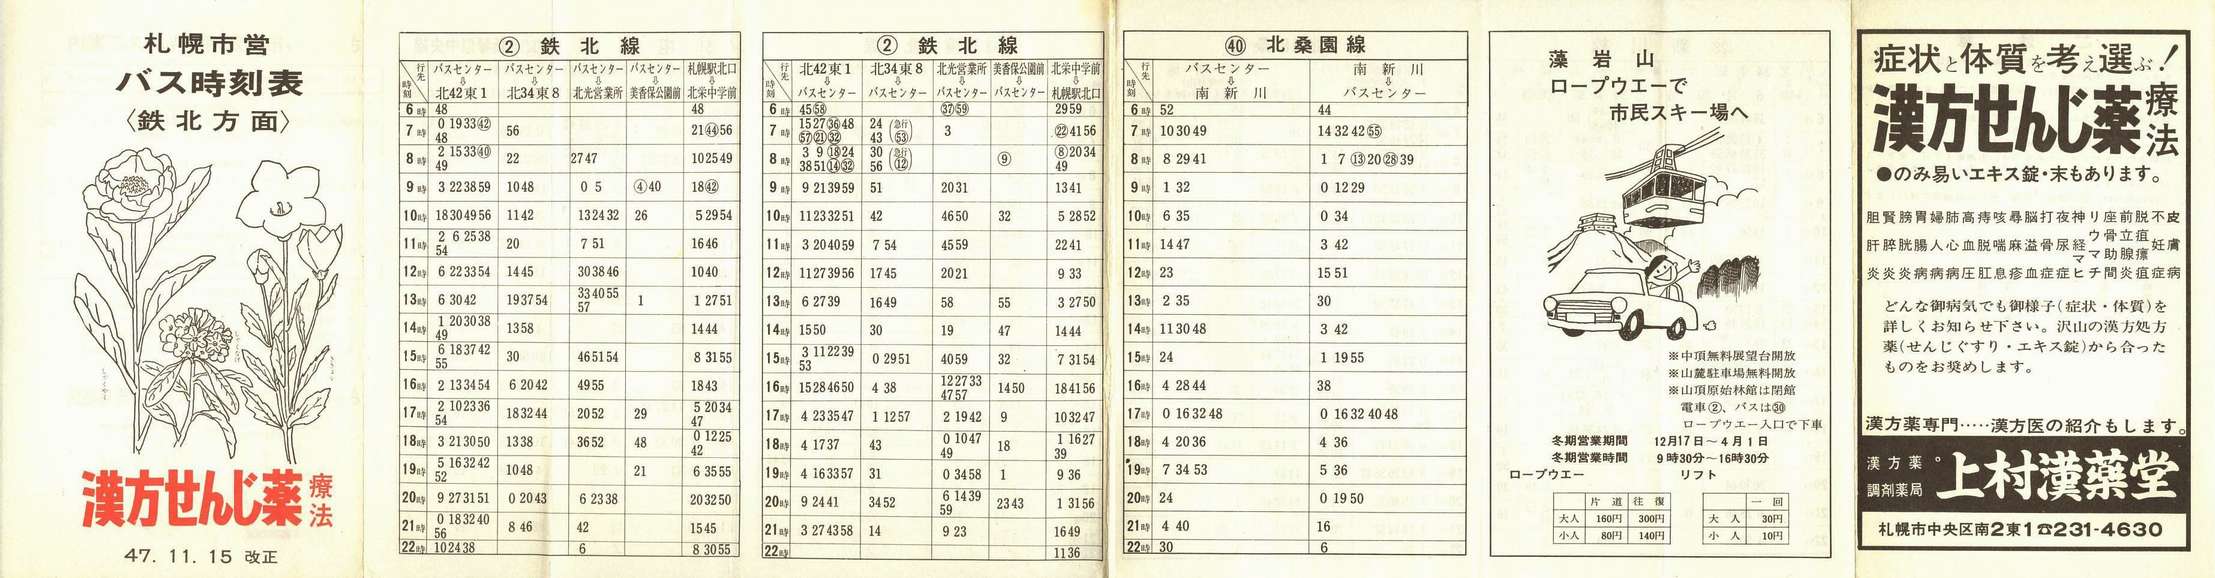 札幌市営
バス時刻表
〈鉄北方面〉
しゃくやく
ききょう
漢方せんじ薬 療法
47. 11. 15 改正
② 鉄 北 線
行先 時刻 バスセンター⇩北42東1 バスセンター⇩北34東8 バスセンター⇩北光営業所 バスセンター⇩美香保公園前 札幌駅北口⇩北栄中学前
6時 48 48
7時 0 19 33 ㊷ 48 56 21 ㊹ 56
8時 2 15 33 ㊵ 49 22 27 47 10 25 49
9時 3 22 38 59 10 48 0 5 ④ 40 18 ㊷
10時 18 30 49 56 11 42 13 24 32 26 5 29 54
11時 2 6 25 38 54 20 7 51 16 46
12時 6 22 33 54 14 45 30 38 46 10 40
13時 6 30 42 19 37 54 33 40 55 57 1 1 27 51
14時 1 20 30 38 49 13 58 14 44
15時 6 18 37 42 55 30 46 51 54 8 31 55
16時 2 13 34 54 6 20 42 49 55 18 43
17時 2 10 23 36 54 18 32 44 20 52 29 5 20 34 47
18時 3 21 30 50 13 38 36 52 48 0 12 25 42
19時 5 16 32 42 52 10 48 21 6 35 55
20時 9 27 31 51 0 20 43 6 23 38 20 32 50
21時 0 18 32 40 56 8 46 42 15 45
22時 10 24 38 6 8 30 55
② 鉄 北 線
行先 時刻 北42東1⇩バスセンター 北34東8⇩バスセンター 北光営業所⇩バスセンター 美香保公園前⇩バスセンター 北栄中学前⇩札幌駅北口
6時 45 58 ㊲ 59 29 59
7時 15 27 ㊱ 48 57 ㉑ ㉜ 24 43 (急行 53) 3 ㉒ 41 56
8時 3 9 ⑱ 24 38 51 ⑭ ㉜ 30 56 (急行 ⑫) ⑨ ⑧ 20 34 49
9時 9 21 39 59 51 20 31 13 41
10時 11 23 32 51 42 46 50 32 5 28 52
11時 3 20 40 59 7 54 45 59 22 41
12時 11 27 39 56 17 45 20 21 9 33
13時 6 27 39 16 49 58 55 3 27 50
14時 15 50 30 19 47 14 44
15時 3 11 22 39 53 0 29 51 40 59 32 7 31 54
16時 15 28 46 50 4 38 12 27 33 47 57 14 50 18 41 56
17時 4 23 35 47 1 12 57 2 19 42 9 10 32 47
18時 4 17 37 43 0 10 47 49 18 1 16 27 39
19時 4 16 33 57 31 0 34 58 1 9 36
20時 9 24 41 34 52 6 14 39 59 23 43 1 31 56
21時 3 27 43 58 14 9 23 16 49
22時 11 36
㊵ 北桑園線
行先 時刻 バスセンター⇩南新川 南新川⇩バスセンター
6時 52 44
7時 10 30 49 14 32 42 55
8時 8 29 41 1 7 ⑬ 20 ㉘ 39
9時 1 32 0 12 29
10時 6 35 0 34
11時 14 47 3 42
12時 23 15 51
13時 2 35 30
14時 11 30 48 3 42
15時 24 1 19 55
16時 4 28 44 38
17時 0 16 32 48 0 16 32 40 48
18時 4 20 36 4 36
19時 7 34 53 5 36
20時 24 0 19 50
21時 4 40 16
22時 30 6
藻 岩 山
ロープウエーで
市民スキー場へ
※中頂無料展望台開放
※山麓駐車場無料開放
※山頂原始林館は閉館
電車②、バスは㉚
ロープウエー入口で下車
冬期営業期間 12月17日～4月1日
冬期営業時間 9時30分～16時30分
ロープウエー リフト
片道 往復 一回
大人 160円 300円 大人 30円
小人 80円 140円 小人 10円
症状と体質を考え選ぶ！
漢方せんじ薬 療法
●のみ易いエキス錠・末もあります。
胆賢膀胃婦肺高痔咳尋脳打夜神リ座前脱不皮
肝膵胱腸人心血脱喘麻溢骨尿経ウ骨立疽妊膚
ママ助腺瘭
炎炎炎病病病圧肛息疹血症症ヒチ間炎疽症病
どんな御病気でも御様子(症状・体質)を
詳しくお知らせ下さい。沢山の漢方処方
薬(せんじぐすり・エキス錠)から合った
ものをお奨めします。
漢方薬専門‥‥漢方医の紹介もします。
漢方薬。
調剤薬局
上村漢薬堂
札幌市中央区南2東1☎231-4630